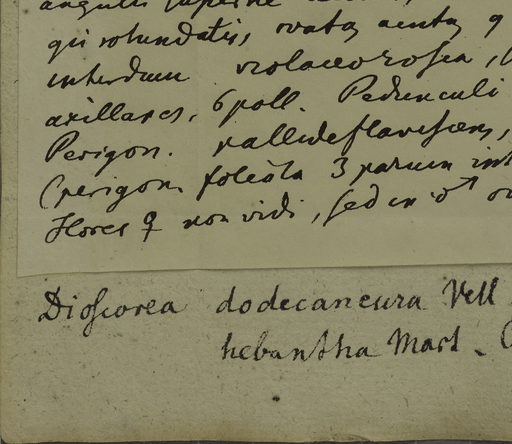 angulis superne
gis rotundatis, ovata acuta q
interdum violaceorosea,
axillares, 6 poll. Pedunculi
Perigon. pallide flavescens,
(perigon. foliola 3 parum int
Flores ♀ non vidi, sed in ♂ ov
Dioscorea dodecaneura Vell
hebantha Mart.